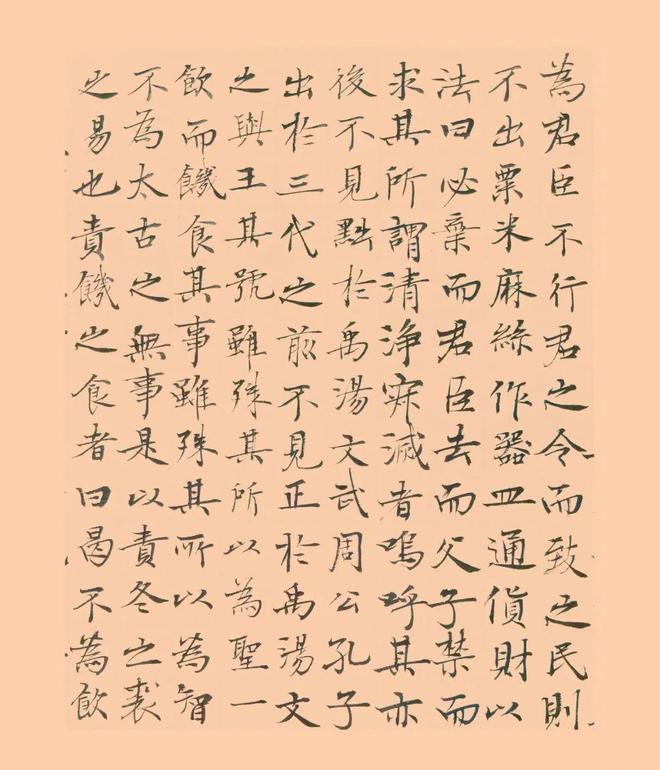 為君臣不行君之令而致之民則
不出粟米麻絲作器皿通貨財以
法曰必棄而君臣去而父子禁而
求其所謂清淨寂滅者嗚呼其亦
後不見黜於禹湯文武周公孔子
出於三代之前不見正於禹湯文
之與王其號雖殊其所以為聖一
飲而饑食其事雖殊其所以為智
不為太古之無事是以責冬之裘
之易也責饑之食者曰曷不為飲